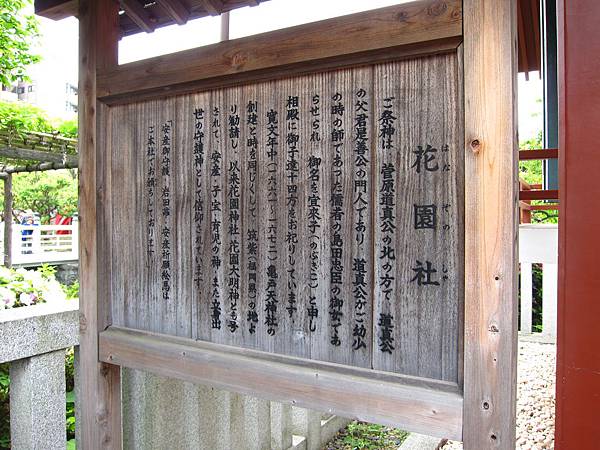 花園社
はなぞのしゃ
ご祭神は、菅原道真公の北の方で、道真公
の父君是善公の門人であり、道真公がご幼少
の時の師であった儒者の島田忠臣の御女であ
らせられ、御名を宣来子(のぶきこ)と申し
相殿に御子達十四方をお祀りしています。
寛文年中(一六六一〜一六七二)亀戸天神社の
創建と時を同じくして、筑紫(福岡県)の地よ
り勧請し、以来花園神社、花園大明神とも号
されて、安産、子宝、育児の神、また立身出
世の守護神として信仰されています。
「安産御守護、岩田帯、安産祈願絵馬は
ご本社でお頒ちしております。